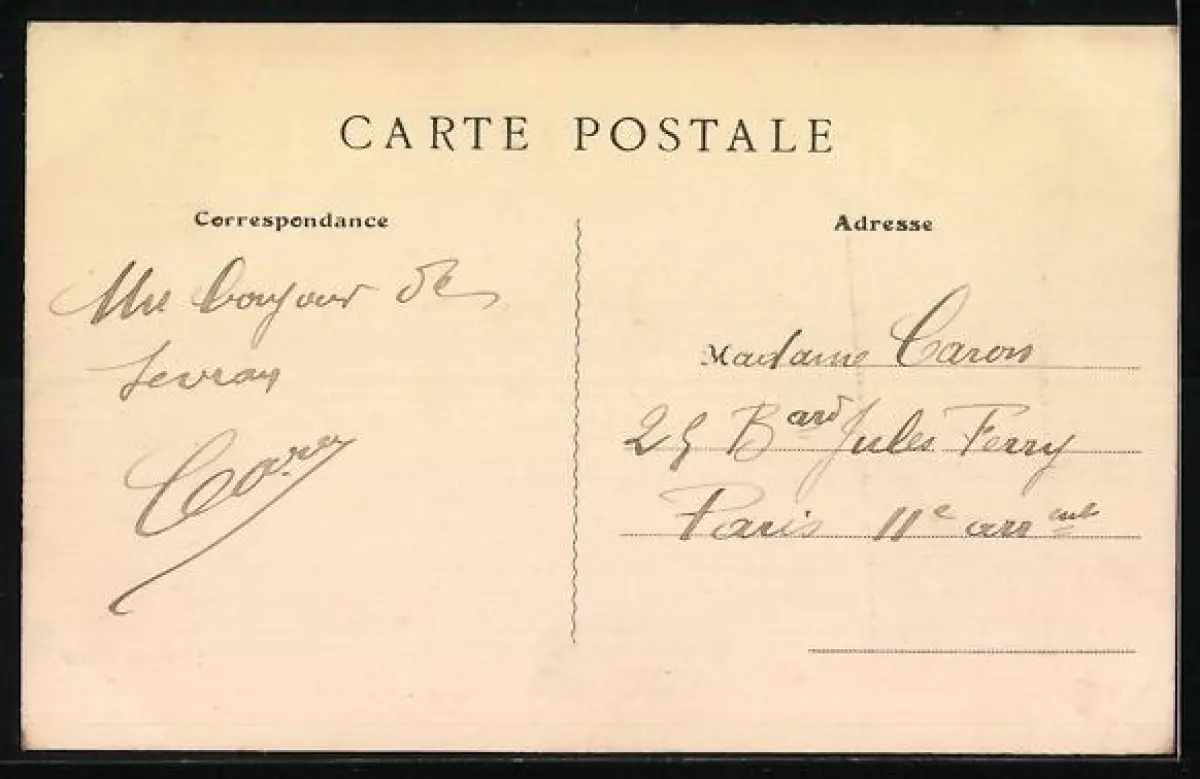 CARTE POSTALE
Correspondance
Un bonjour de
Sevran
Caron
Adresse
Madame Caron
25 Bard Jules Ferry
Paris 11e arrent